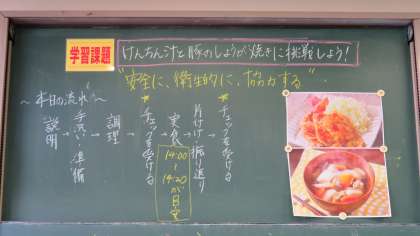 学習課題
けんちん汁と豚のしょうが焼きに挑戦しよう!
"安全に、衛生的に、協力する"
～本日の流れ～
説明
→
手洗い・準備
→
調理
→
★チェックを受ける
→
実食
14:00
～
14:20が目安
→
片付け・振り返り
→
★チェックを受ける